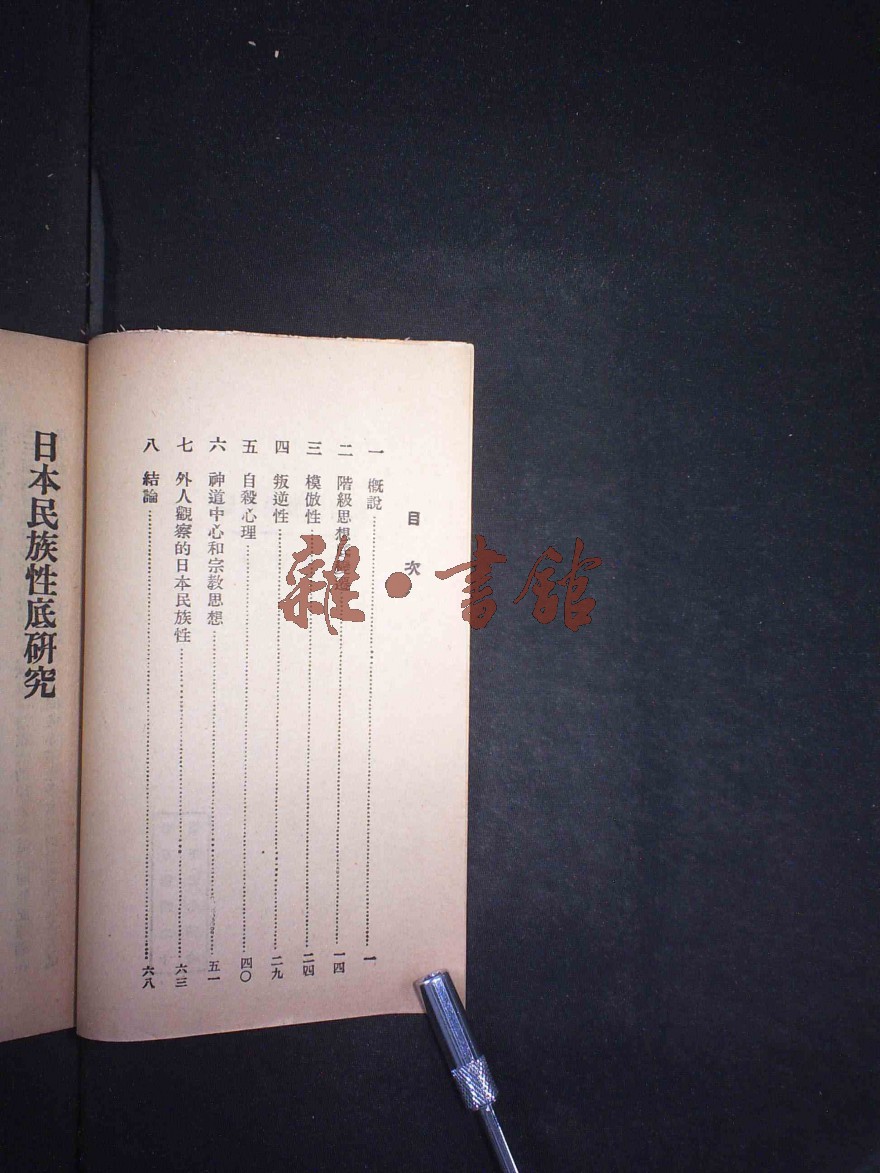 目次
一 概說 一
二 階級思想 一四
三 模倣性 二四
四 叛逆性 二九
五 自殺心理 四〇
六 神道中心和宗敎思想 五一
七 外人觀察的日本民族性 六三
八 結論 六八
日本民族性底硏究
雜·書館